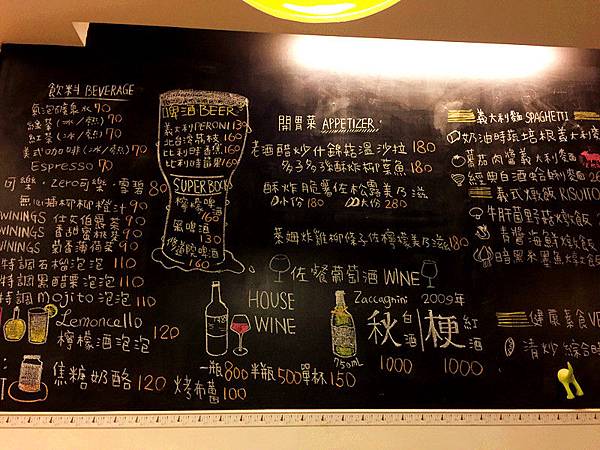 飲料 BEVERAGE
氣泡礦泉水 70
綠茶(冰/熱) 70
紅茶(冰/熱) 70
美式咖啡(冰/熱) 70
Espresso 70
可樂·zero可樂·雪碧
無心插柳柳橙汁 90
WININGS 仕女伯爵茶 90
WININGS 香甜蜜桃茶 90
WININGS 菊香薄荷茶 90
特調石榴泡泡 110
特調黑醋栗泡泡 110
特調mojito泡泡 110
Lemoncello
檸檬酒泡泡 120
焦糖奶酪 120
烤布蕾 100
啤酒BEER
義大利PERONI 130
台台灣荔枝 160
比利時香蕉 160
比利時蘋果 160
SUPER BOCK
檸檬啤酒 160
黑啤酒 130
修道院啤酒 160
開胃菜 APPETIZER
老酒醋炒什錦菇溫沙拉 180
多子多孫酥炸柳葉魚 180
酥炸脆薯佐松露美乃滋
小份 180 大份 280
萊姆炸雞柳條子佐檸檬美乃滋 180
佐餐葡萄酒 WINE
HOUSE WINE
一瓶800 半瓶500 單杯150
750mL
Zaccagnini 2009年
秋 白酒 1000
梗 紅酒 1000
義大利麵 SPAGHETTI
奶油時蔬培根義大利
蕃茄肉醬義大利麵
經典白酒蛤蜊
義式燉飯 RISOTTO
牛肝菌野菇燉飯
青醬海鮮燉飯
暗黑米墨魚燉飯
健康素食 VE
清炒綜合時